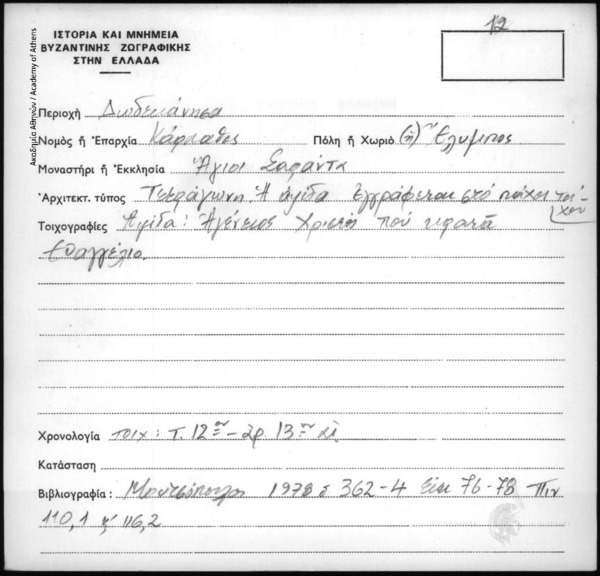 12
ΙΣΤΟΡΙΑ ΚΑΙ ΜΝΗΜΕΙΑ
ΒΥΖΑΝΤΙΝΗΣ ΖΩΓΡΑΦΙΚΗΣ
ΣΤΗΝ ΕΛΛΑΔΑ
Ακαδημία Αθηνών / Academy of Athens
Περιοχή Δωδεκάνησα
Νομὸς ἤ Ἐπαρχία Κάρπαθος Πόλη ἤ Χωριὸ (ἡ) Ἔλυμπος
Μοναστήρι ἤ Ἐκκλησία Ἅγιοι Σαράντα
Ἀρχιτεκτ. τύπος Τετράγωνη. Ἡ ἁψίδα ἐγγράφεται στό πάχος τοί-
χου
Τοιχογραφίες Ἁψίδα: Ἀγένειος Χριστός πού κρατᾶ
Εὐαγγέλιο.
Χρονολογία τοιχ: τ. 12ου - ἀρ 13ου αἰ
Κατάσταση
Βιβλιογραφία: Μουτσόπουλος 1978 σ 362-4 Εἰκ 76-78 Πιν
110,1 κ' 116,2